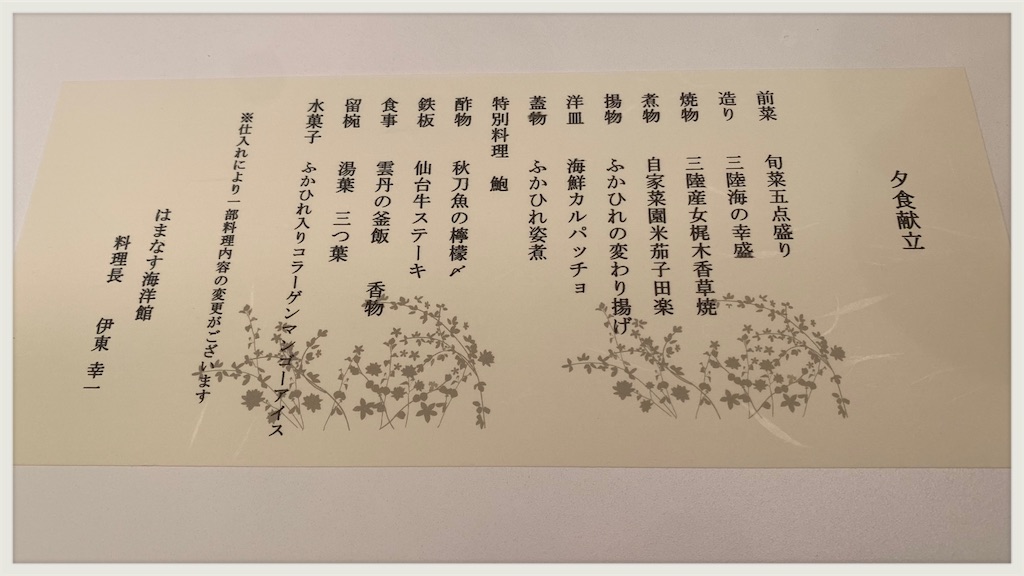 夕食献立
前菜 旬菜五点盛り
造り 三陸海の幸盛
焼物 三陸産女梶木香草焼
煮物 自家菜園米茄子田楽
揚物 ふかひれの変わり揚げ
洋皿 海鮮カルパッチョ
蓋物 ふかひれ姿煮
特別料理 鮑
酢物 秋刀魚の檸檬〆
鉄板 仙台牛ステーキ
食事 雲丹の釜飯 香物
留椀 湯葉 三つ葉
水菓子 ふかひれ入りコラーゲンマンゴーアイス
※仕入れにより一部料理内容の変更がございます
はまなす海洋館
料理長 伊東 幸一